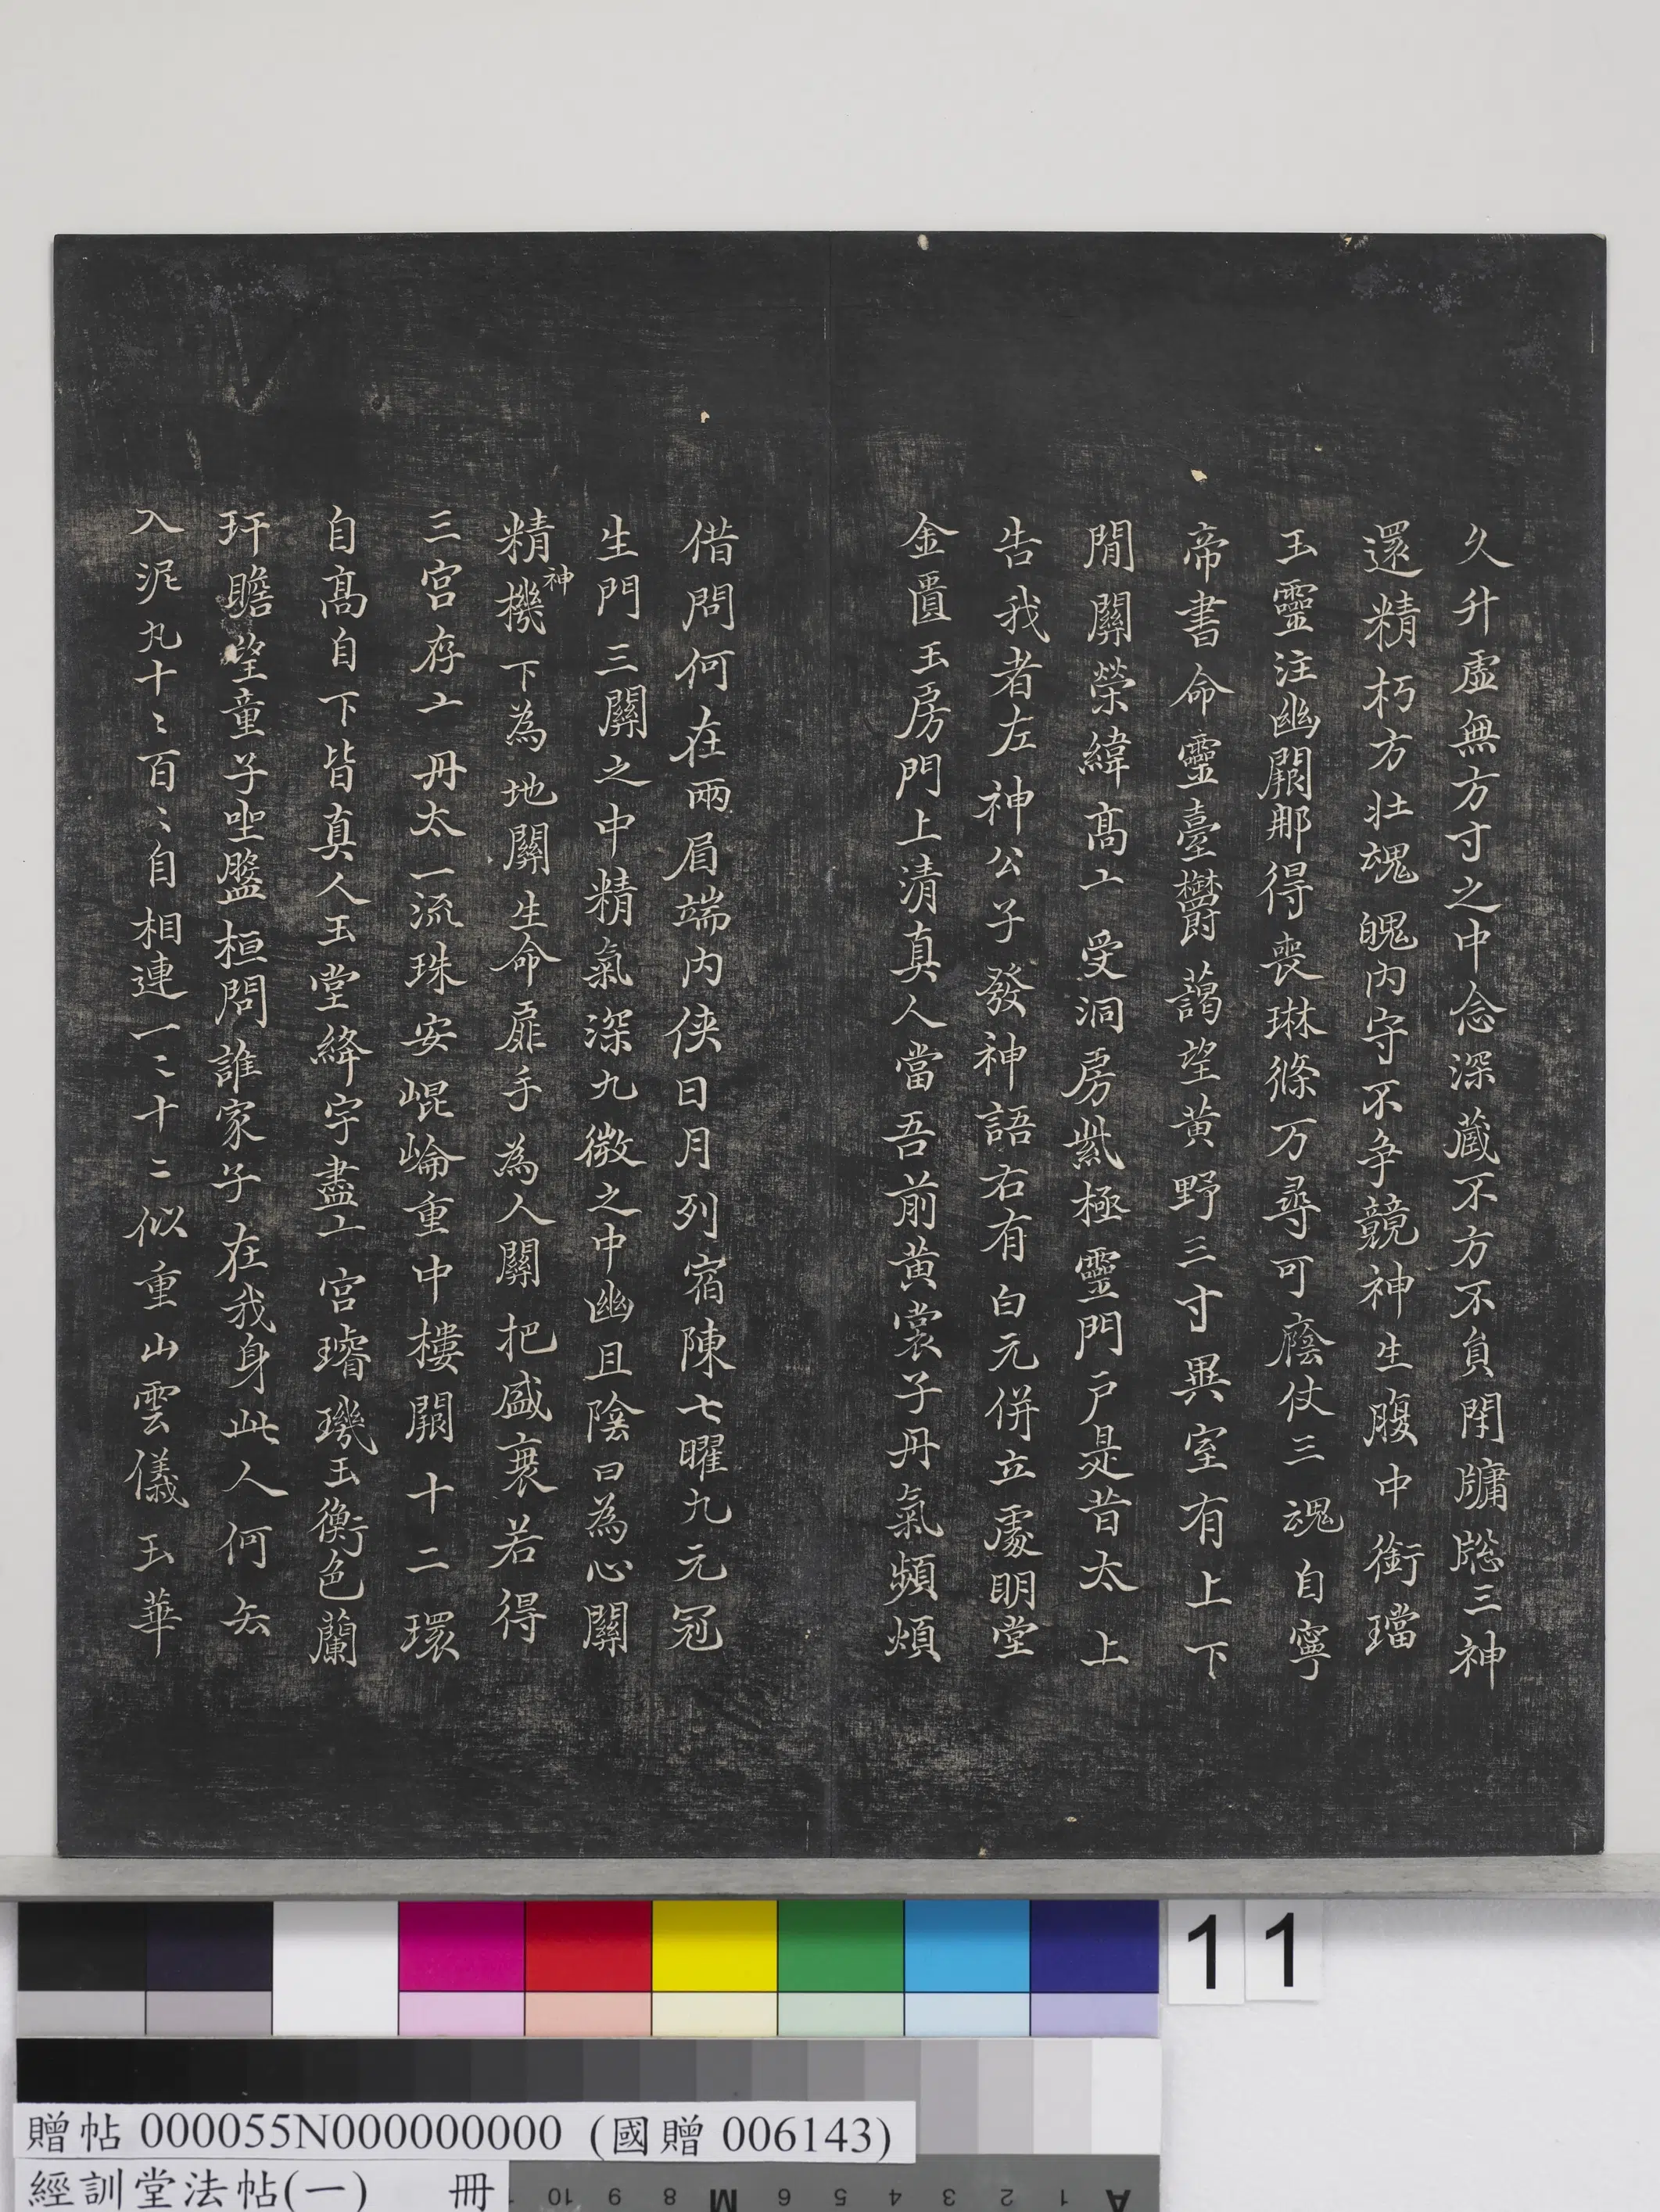 久升虛無方寸之中念深藏不方不負閇牗牎三神
還精朽方壯魂魄內守不爭競神生腹中銜璫
玉靈注幽闕那得喪琳條万尋可廕仗三魂自寧
帝書命靈臺欝藹望黃野三寸異室有上下
閒關榮緯高亠受洞房紫極靈門戶是昔太上
告我者左神公子發神語右有白元併立處明堂
金匱玉房門上清真人當吾前黃裳子丹氣頻煩
借問何在兩眉端內俠日月列宿陳七曜九元冠
生門三關之中精氣深九微之中幽且陰曰為心關
精神機下為地關生命扉手為人關把盛衰若得
三宮存亠丹太一流珠安崐崘重中樓閣十二環
自高自下皆真人玉堂絳宇盡亠宮璿璣玉衡色蘭
玕瞻望童子坐盤桓問誰家子在我身此人何去
入泥丸十〻百〻自相連一〻十〻似重山雲儀玉華
11
贈帖 000055N000000000 (國贈 006143)
經訓堂法帖(一) 冊
10 9 8 M 6 5 4 3 2 1 A